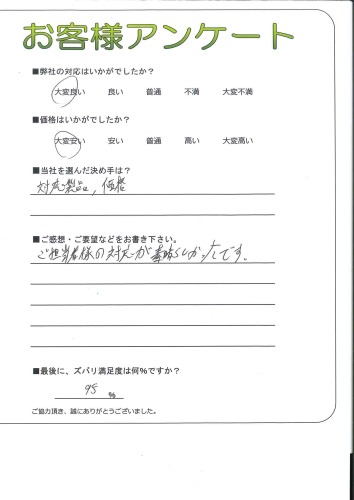 お客様アンケート
■弊社の対応はいかがでしたか？
大変良い 良い 普通 不満 大変不満
■価格はいかがでしたか？
大変安い 安い 普通 高い 大変高い
■当社を選んだ決め手は？
対応、製品、価格
■ご感想・ご要望などをお書き下さい。
ご担当者様の対応が素晴らしかったです。
■最後に、ズバリ満足度は何%ですか？
95 %
ご協力頂き、誠にありがとうございました。